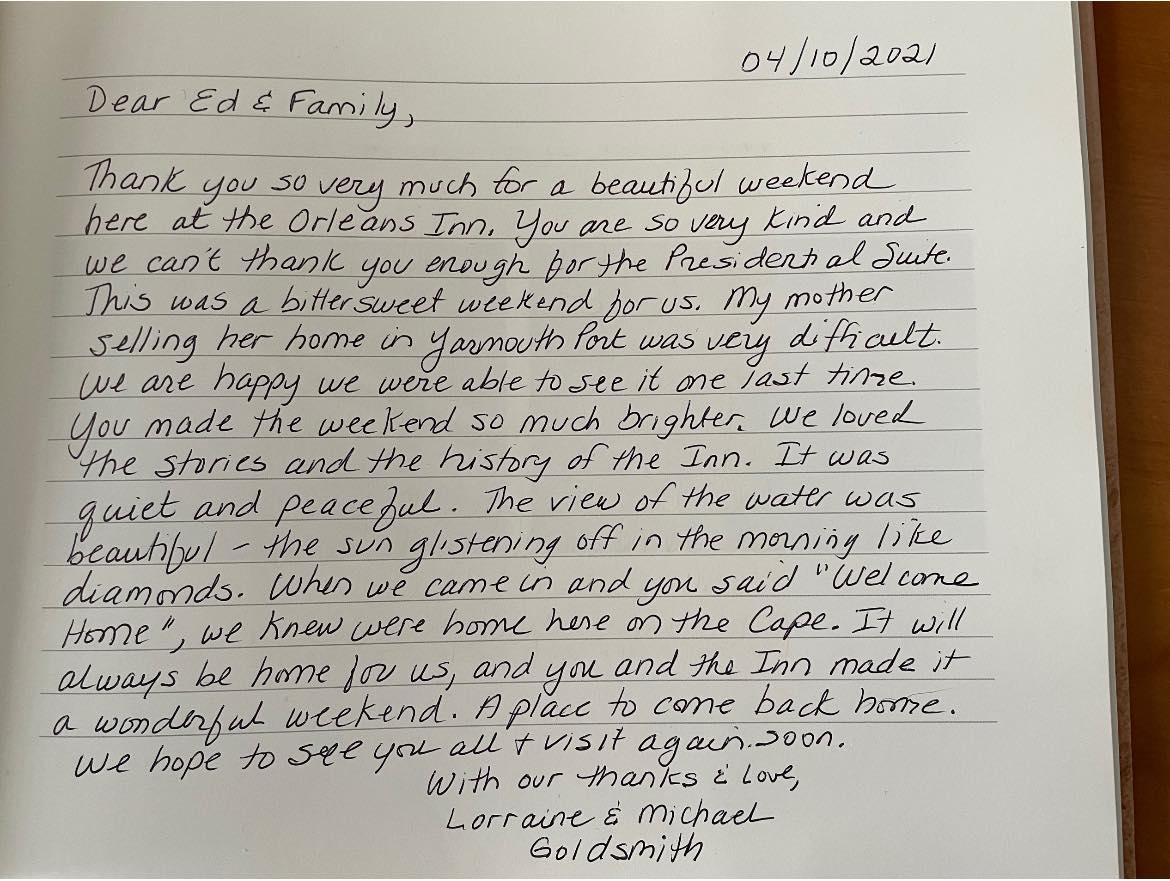 04/10/2021
Dear Ed & Family,
Thank you so very much for a beautiful weekend
here at the Orleans Inn. You are so very kind and
we can't thank you enough for the Presidential Suite.
This was a bittersweet weekend for us. My mother
selling her home in Yarmouth Port was very difficult.
We are happy we were able to see it one last time.
You made the weekend so much brighter. We loved
the stories and the history of the Inn. It was
quiet and peaceful. The view of the water was
beautiful - the sun glistening off in the morning like
diamonds. When we came in and you said "Welcome
Home", we knew were home here on the Cape. It will
always be home for us, and you and the Inn made it
a wonderful weekend. A place to come back home.
We hope to see you all + visit again soon.
With our thanks & Love,
Lorraine & Michael
Goldsmith